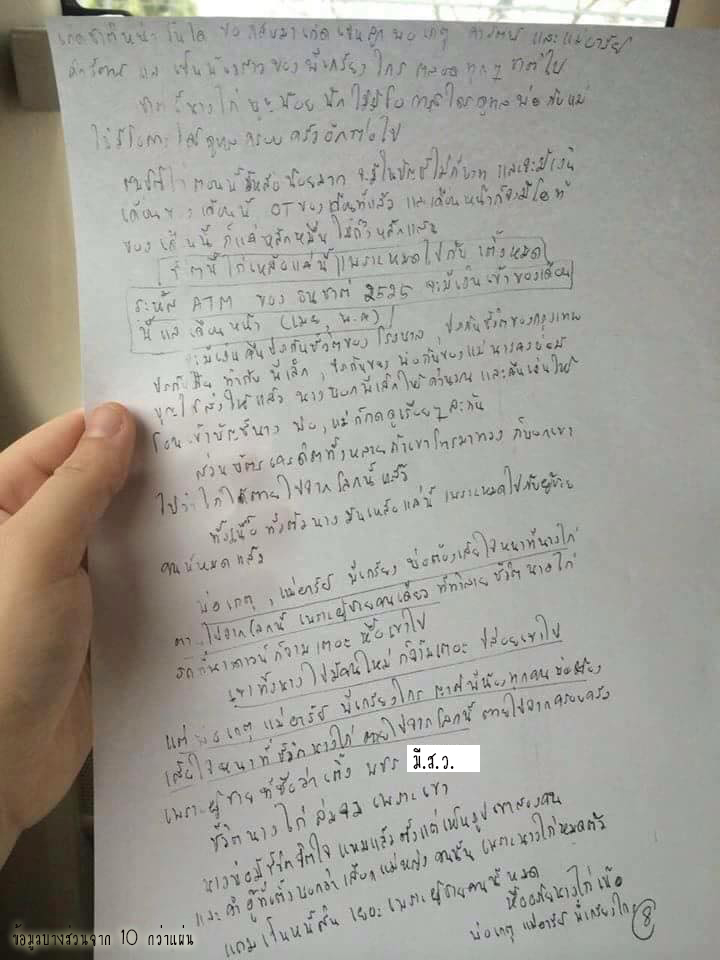 เกิดชาติหน้า ฉันใด ขอกลับมาเกิดเป็นลูก พ่อ เกตุ และแม่อารีย์
และ เป็นน้องสาวของพี่เกรียงไกร ตลอดทุกๆ ชาติไป
ชาตินี้นางไก่ บุญน้อยนัก ไม่มีโอกาสได้ดูแล พ่อ กับแม่
ไม่มีโอกาส ได้ดูแลครอบครัวอีกต่อไป
ตอนนี้มีเหลือน้อยมาก จะมีในบัญชีไม่กี่บาท และจะมีเงิน
เดือนของเดือนนี้ OT ของเดือนที่แล้ว และเดือนหน้าก็จะมีโอที
ของเดือนนี้ ก็แค่หลักหมื่น ไม่ถึงหลักแสน
ชีวิตนี้ไก่เหลือแค่นี้ เพราะหมดไปกับ เติ้งหมด
ระหัส ATM ของ ธนชาต 2525 จะมีเงินเข้าของเดือน
นี้ และเดือนหน้า (เมย, พ.ค)
จะมีเงินคืนประกันชีวิตของโรงบาล, ประกันชีวิตของกรุงเทพ
ประกันชีวิต ทำกับ พี่เล็ก, ประกันของ พ่อ กับของแม่ นาง
ส่งให้แล้ว นางบอกพี่เล็กให้คำนวณ และคืนเงินให้
โอน เข้าบัญชีนาง พ่อ, แม่ ก็กดดูเรื่อยๆ ละกัน
ส่วนบัตรเครดิตทั้งหลาย ถ้าเขาโทรมาทวง ก็บอกเขา
ไปว่าไก่ได้ตายไปจากโลกนี้ แล้ว
ทั้งเนื้อ ทั้งตัวนาง มันเหลือแค่นี้ เพราะหมดไปกับผู้ชาย
คนนี้หมดแล้ว
พ่อ เกตุ, แม่อารีย์ พี่เกรียง พ่อต้องเสียใจหนาที่นางไก่
ตายไปจากโลกนี้ เพราะผู้ชายคนเดียว ที่ทำลาย ชีวิต นางไก่
ก็ตามเถอะ เขาไป
เขาทิ้งนางไปมีคนใหม่ ก็ตามเถอะ ปล่อยเขาไป
แต่ พ่อ เกตุ แม่อารีย์ พี่เกรียงไกร ญาติพี่น้องทุกคน ต้อง
เสียใจหนาที่ ชีวิตนางไก่ ตายไปจากโลกนี้ ตายไปจากครอบครัว
เพราะผู้ชาย ที่ชื่อว่า เติ้ง พชร มี.ส.ว.
ชีวิตนางไก่ ล่มจม เพราะเขา
และ คำ ที่เติ้งบอกว่า เลือกแม่หญิง คนนั้น เพราะนางไก่หมดตัว
แถมเป็นหนี้สิน เยอะ เพราะผู้ชายคนนี้ หมด
นางไก่
พ่อ เกตุ แม่อารีย์ พี่เกรียงไกร 8
ข้อมูลบางส่วนจาก 10 กว่าแผ่น